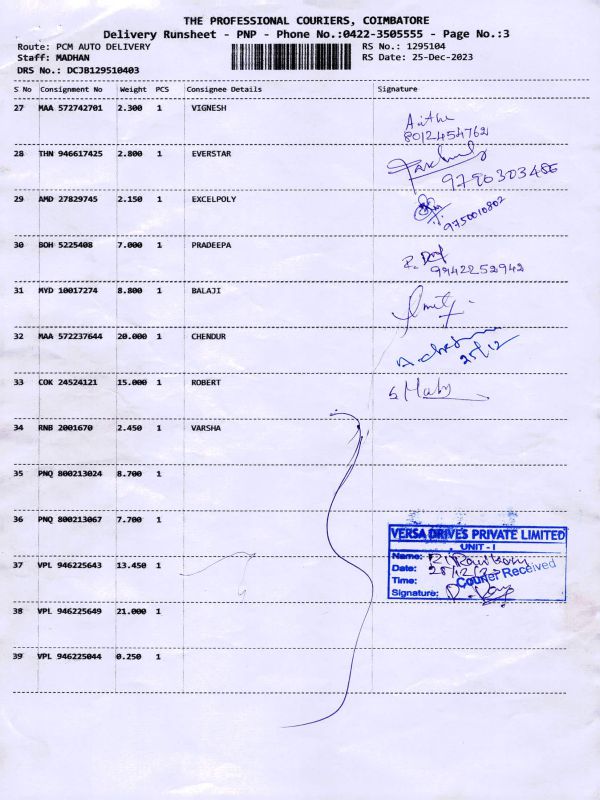 THE PROFESSIONAL COURIERS, COIMBATORE
Delivery Runsheet - PNP - Phone No.:0422-3505555 - Page No.:3
Route: PCM AUTO DELIVERY RS No.: 1295104
Staff: MADHAN RS Date: 25-Dec-2023
DRS No.: DCJB129510403
S No Consignment No Weight PCS Consignee Details Signature
27 MAA 572742701 2.300 1 VIGNESH
8012454762
28 THN 946617425 2.800 1 EVERSTAR
9790303486
29 AMD 27829745 2.150 1 EXCELPOLY
9750010802
30 BOH 5225408 7.000 1 PRADEEPA
9942252942
31 MYD 10017274 8.800 1 BALAJI
32 MAA 572237644 20.000 1 CHENDUR
25/12
33 COK 24524121 15.000 1 ROBERT
34 RNB 2001670 2.450 1 VARSHA
35 PNQ 800213024 8.700 1
36 PNQ 800213067 7.700 1
VERSA DRIVES PRIVATE LIMITED
UNIT - I
37 VPL 946225643 13.450 1
Name:
Date:
Time: Courier Received
Signature:
38 VPL 946225649 21.000 1
39 VPL 946225044 0.250 1